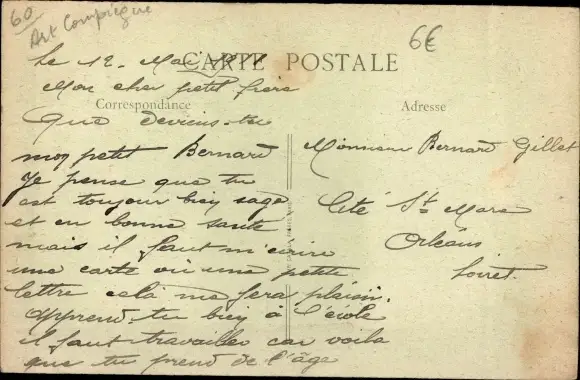 60
Art Compiegne
6€
Le 12. Mai
CARTE POSTALE
Mon cher petit frère
Correspondance
Adresse
Que deviens-tu
mon petit Bernard
Je pense que tu
est toujour bien sage
et en bonne santé
mais il faut m'écrire
une carte ou une petite
lettre celà me fera plaisir.
Apprend-tu bien à l'école
il faut travailler car voila
que tu prend de l'âge
Monsieur Bernard Gillet
Cité St Marc
Orléans
Loiret.